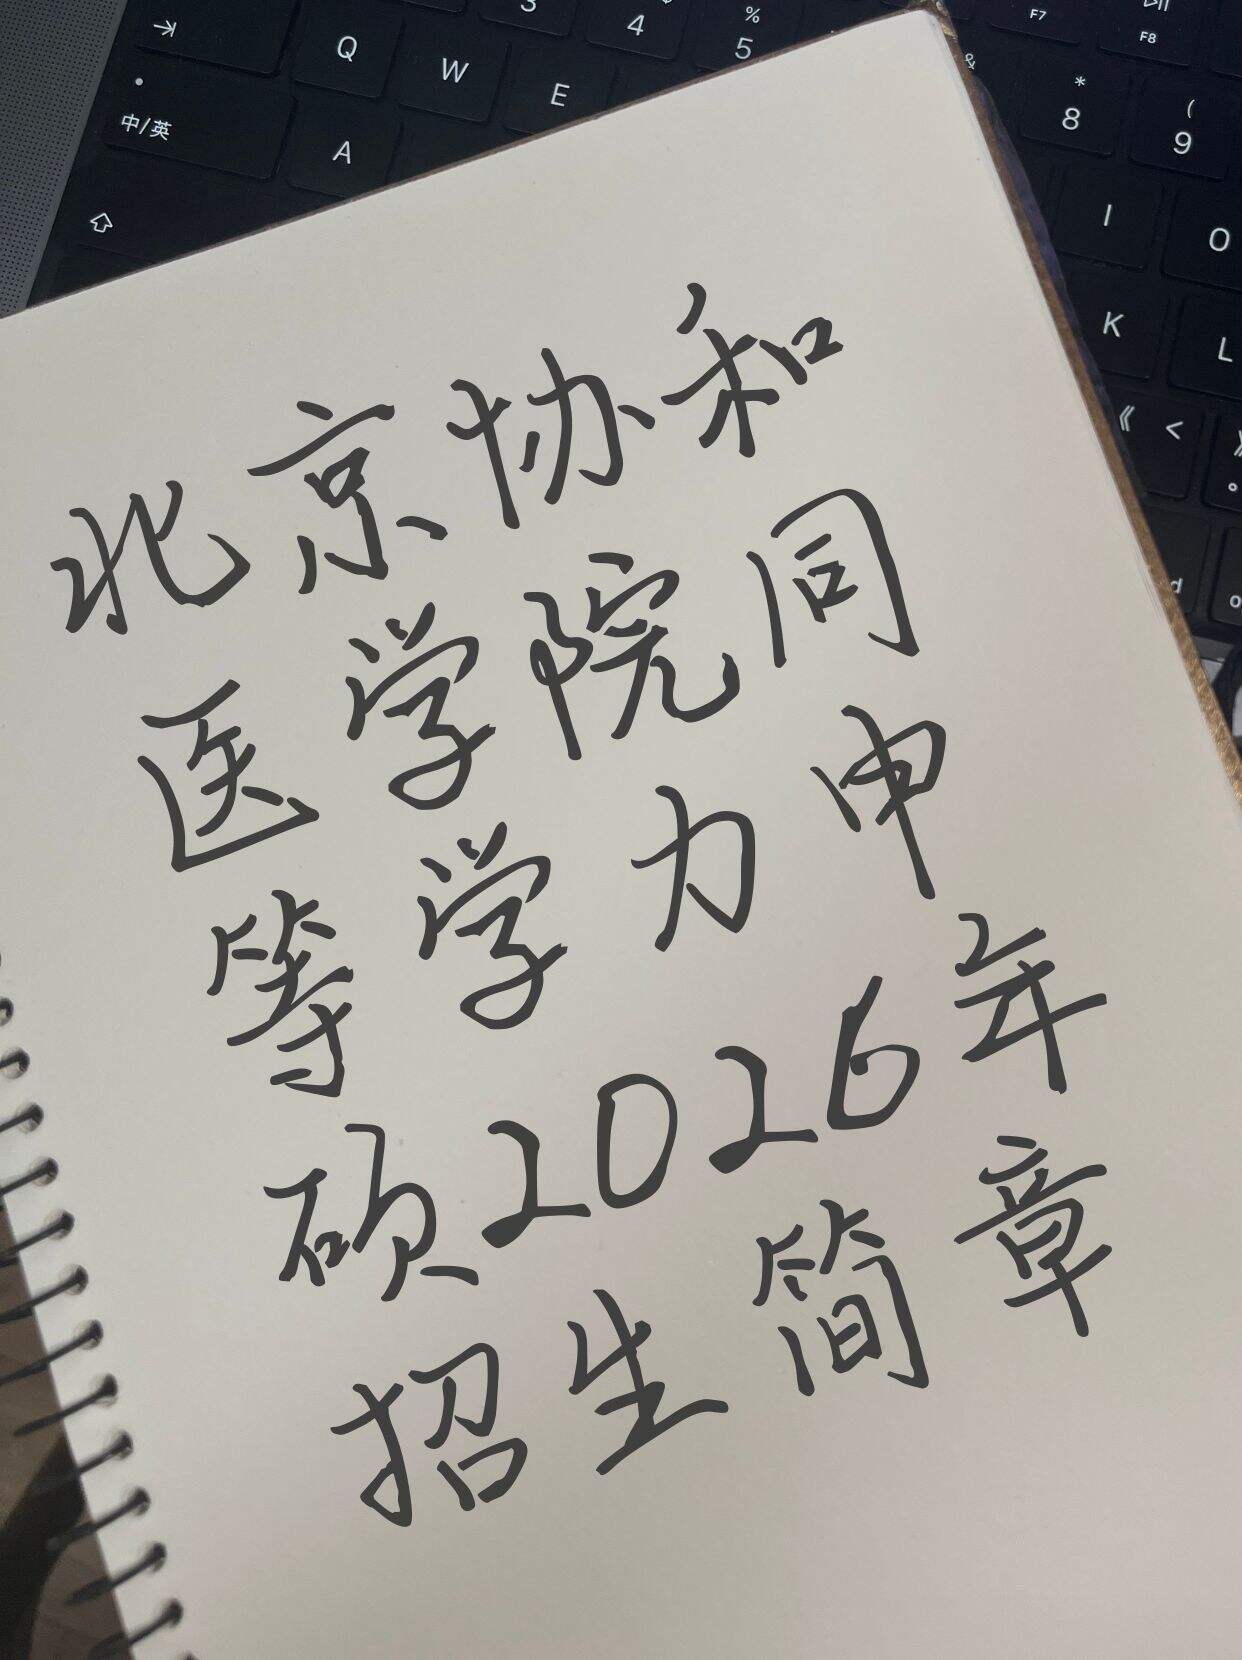 北京协和
医学院同
等学力申
硕2026年
招生简章
Q W E
3 4 % 5
中/英 A
F7 F8
& * 8 ( 9
I O
K L
《 < 》 。